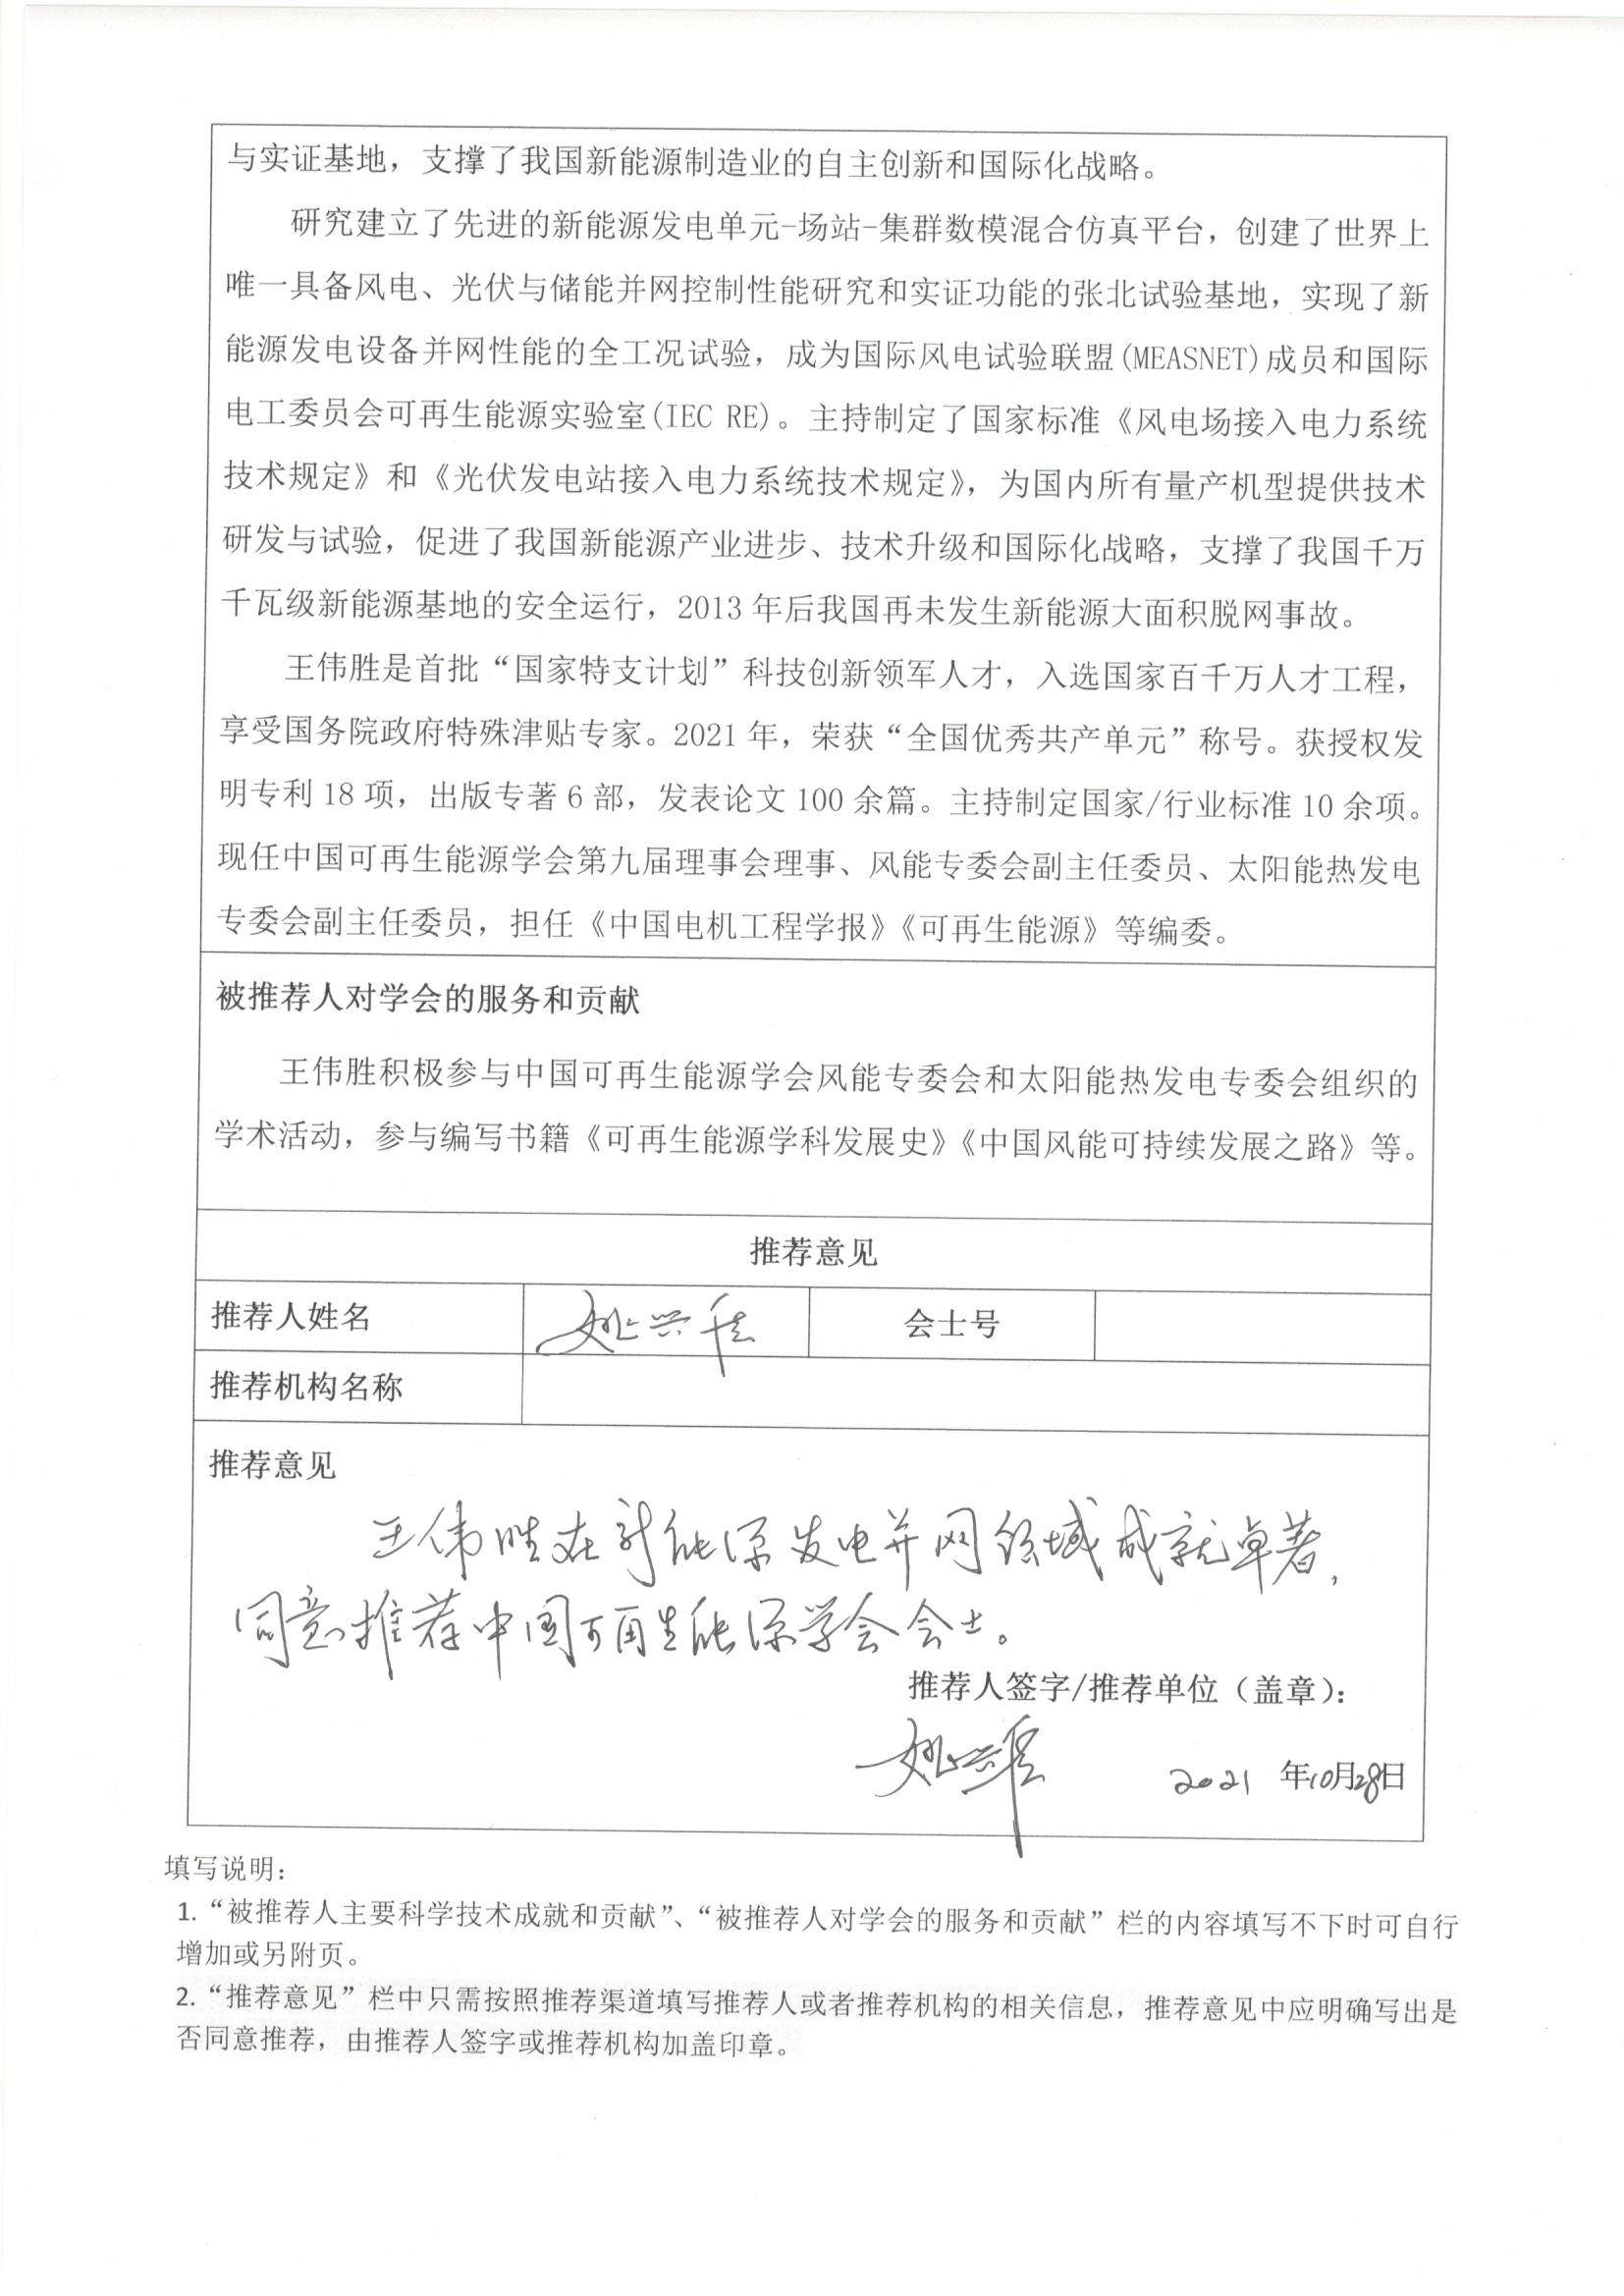 与实证基地，支撑了我国新能源制造业的自主创新和国际化战略。
研究建立了先进的新能源发电单元-场站-集群数模混合仿真平台，创建了世界上
唯一具备风电、光伏与储能并网控制性能研究和实证功能的张北试验基地，实现了新
能源发电设备并网性能的全工况试验，成为国际风电试验联盟(MEASNET)成员和国际
电工委员会可再生能源实验室(IEC RE)。主持制定了国家标准《风电场接入电力系统
技术规定》和《光伏发电站接入电力系统技术规定》，为国内所有量产机型提供技术
研发与试验，促进了我国新能源产业进步、技术升级和国际化战略，支撑了我国千万
千瓦级新能源基地的安全运行，2013 年后我国再未发生新能源大面积脱网事故。
王伟胜是首批“国家特支计划”科技创新领军人才，入选国家百千万人才工程，
享受国务院政府特殊津贴专家。2021 年，荣获“全国优秀共产单元”称号。获授权发
明专利 18 项，出版专著 6 部，发表论文 100 余篇。主持制定国家/行业标准 10 余项。
现任中国可再生能源学会第九届理事会理事、风能专委会副主任委员、太阳能热发电
专委会副主任委员，担任《中国电机工程学报》《可再生能源》等编委。
被推荐人对学会的服务和贡献
王伟胜积极参与中国可再生能源学会风能专委会和太阳能热发电专委会组织的
学术活动，参与编写书籍《可再生能源学科发展史》《中国风能可持续发展之路》等。
推荐意见
推荐人姓名 姚兴佳 会士号
推荐机构名称
推荐意见
王伟胜在新能源发电并网领域成就卓著，
同意推荐中国可再生能源学会会士。
推荐人签字/推荐单位（盖章）：
姚兴佳 2021 年10月28日
填写说明：
1. “被推荐人主要科学技术成就和贡献”、“被推荐人对学会的服务和贡献”栏的内容填写不下时可自行
增加或另附页。
2. “推荐意见”栏中只需按照推荐渠道填写推荐人或者推荐机构的相关信息，推荐意见中应明确写出是
否同意推荐，由推荐人签字或推荐机构加盖印章。